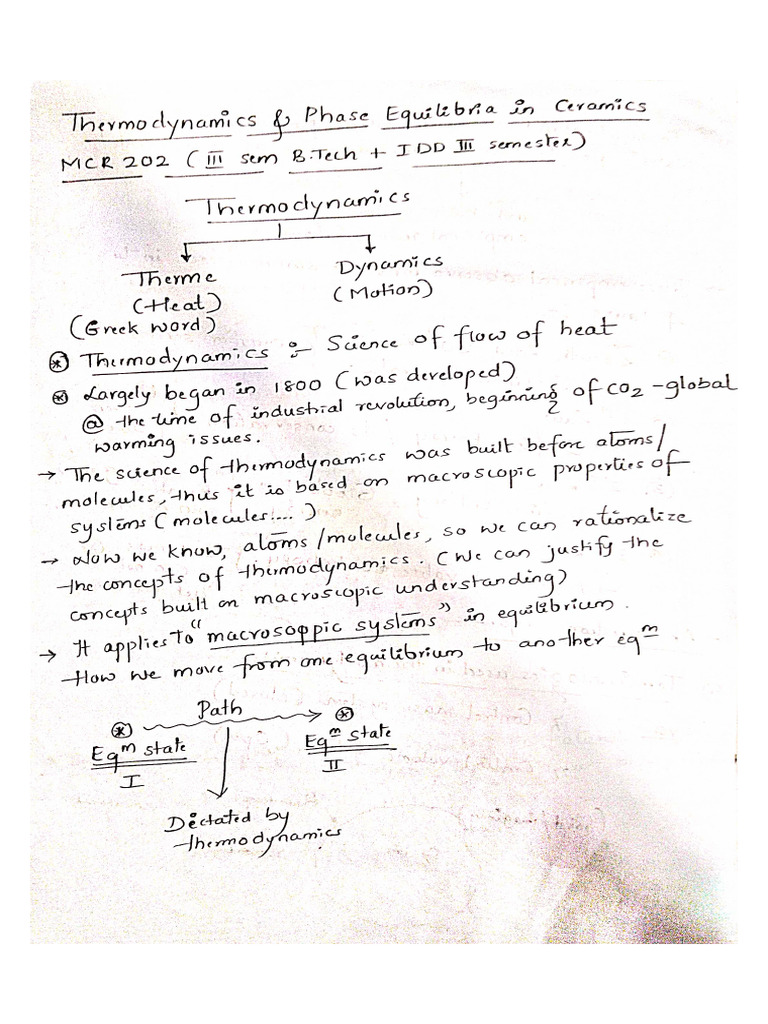 Thermodynamics & Phase Equilibria in Ceramics
MCR 202 (III sem B.Tech + IDD III semester)
Thermodynamics
Therme Dynamics
(Heat) (Motion)
(Greek word)
Thermodynamics :- Science of flow of heat
Largely began in 1800 (was developed)
@ the time of industrial revolution, beginning of CO2 -global
warming issues.
→ The science of thermodynamics was built before atoms/
molecules, thus it is based on macroscopic properties of
systems (molecules....)
→ Now we know, atoms/molecules, so we can rationalize
the concepts of thermodynamics. (We can justify the
concepts built on macroscopic understanding)
→ It applies to "macrosoppic systems" in equilibrium.
How we move from one equilibrium to another eqm.
Path
Eqm state Eqm state
I II
Dictated by
thermodynamics.